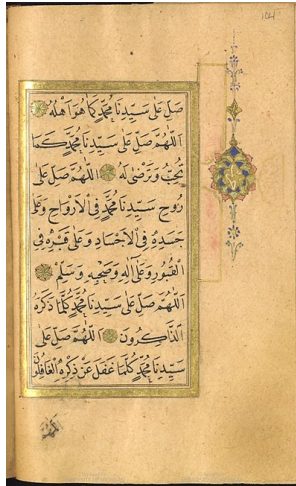 104
صَلِّ عَلٰى سَيِّدِنَا مُحَمَّدٍ كَمَا هُوَ اَهْلُهُ
اَللّٰهُمَّ صَلِّ عَلٰى سَيِّدِنَا مُحَمَّدٍ كَمَا
تُحِبُّ وَتَرْضٰى لَهُ اَللّٰهُمَّ صَلِّ عَلٰى
رُوحِ سَيِّدِنَا مُحَمَّدٍ فِى الْاَرْوَاحِ وَعَلٰى
جَسَدِهِ فِى الْاَجْسَادِ وَعَلٰى قَبْرِهِ فِى
الْقُبُورِ وَعَلٰى اٰلِهِ وَصَحْبِهِ وَسَلِّمْ
اَللّٰهُمَّ صَلِّ عَلٰى سَيِّدِنَا مُحَمَّدٍ كُلَّمَا ذَكَرَهُ
الذَّاكِرُونَ اَللّٰهُمَّ صَلِّ عَلٰى
سَيِّدِنَا مُحَمَّدٍ كُلَّمَا غَفَلَ عَنْ ذِكْرِهِ الْغَافِلُونَ
اللهم